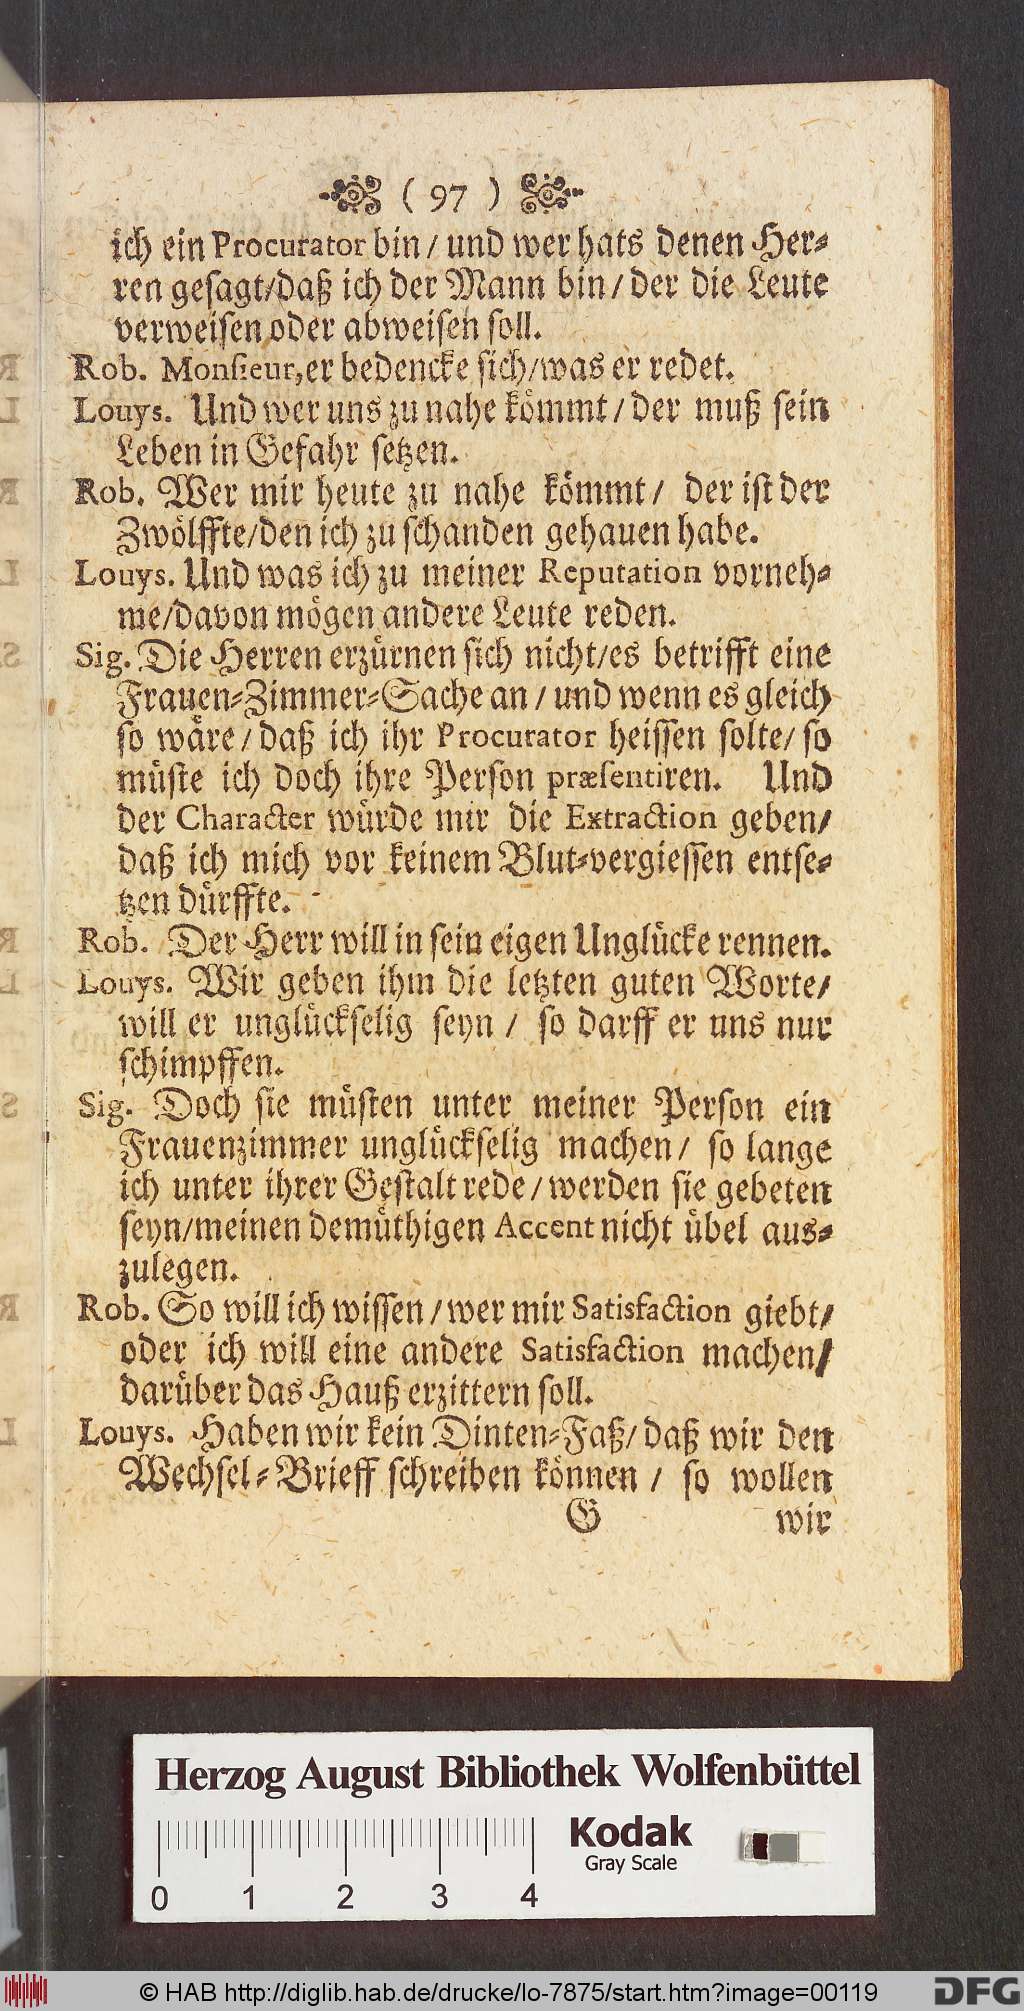 ( 97 )
ich ein Procurator bin / und wer hats denen Her-
ren gesagt/daß ich der Mann bin / der die Leute
verweisen oder abweisen soll.
Rob. Monsieur, er bedencke sich/was er redet.
Louys. Und wer uns zu nahe kömmt / der muß sein
Leben in Gefahr setzen.
Rob. Wer mir heute zu nahe kömmt / der ist der
Zwölffte/den ich zu schanden gehauen habe.
Louys. Und was ich zu meiner Reputation vorneh-
me/davon mögen andere Leute reden.
Sig. Die Herren erzürnen sich nicht/es betrifft eine
Frauen-Zimmer-Sache an / und wenn es gleich
so wäre / daß ich ihr Procurator heissen solte/ so
müste ich doch ihre Person præsentiren. Und
der Character würde mir die Extraction geben/
daß ich mich vor keinem Blut-vergiessen entse-
tzen dürffte.
Rob. Der Herr will in sein eigen Unglücke rennen.
Louys. Wir geben ihm die letzten guten Worte/
will er unglückselig seyn / so darff er uns nur
schimpffen.
Sig. Doch sie müsten unter meiner Person ein
Frauenzimmer unglückselig machen / so lange
ich unter ihrer Gestalt rede / werden sie gebeten
seyn/meinen demüthigen Accent nicht übel aus-
zulegen.
Rob. So will ich wissen / wer mir Satisfaction giebt/
oder ich will eine andere Satisfaction machen/
darüber das Hauß erzittern soll.
Louys. Haben wir kein Dinten-Faß/ daß wir den
Wechsel-Brieff schreiben können / so wollen
G wir
Herzog August Bibliothek Wolfenbüttel
Kodak
Gray Scale
0 1 2 3 4
© HAB http://diglib.hab.de/drucke/lo-7875/start.htm?image=00119
DFG